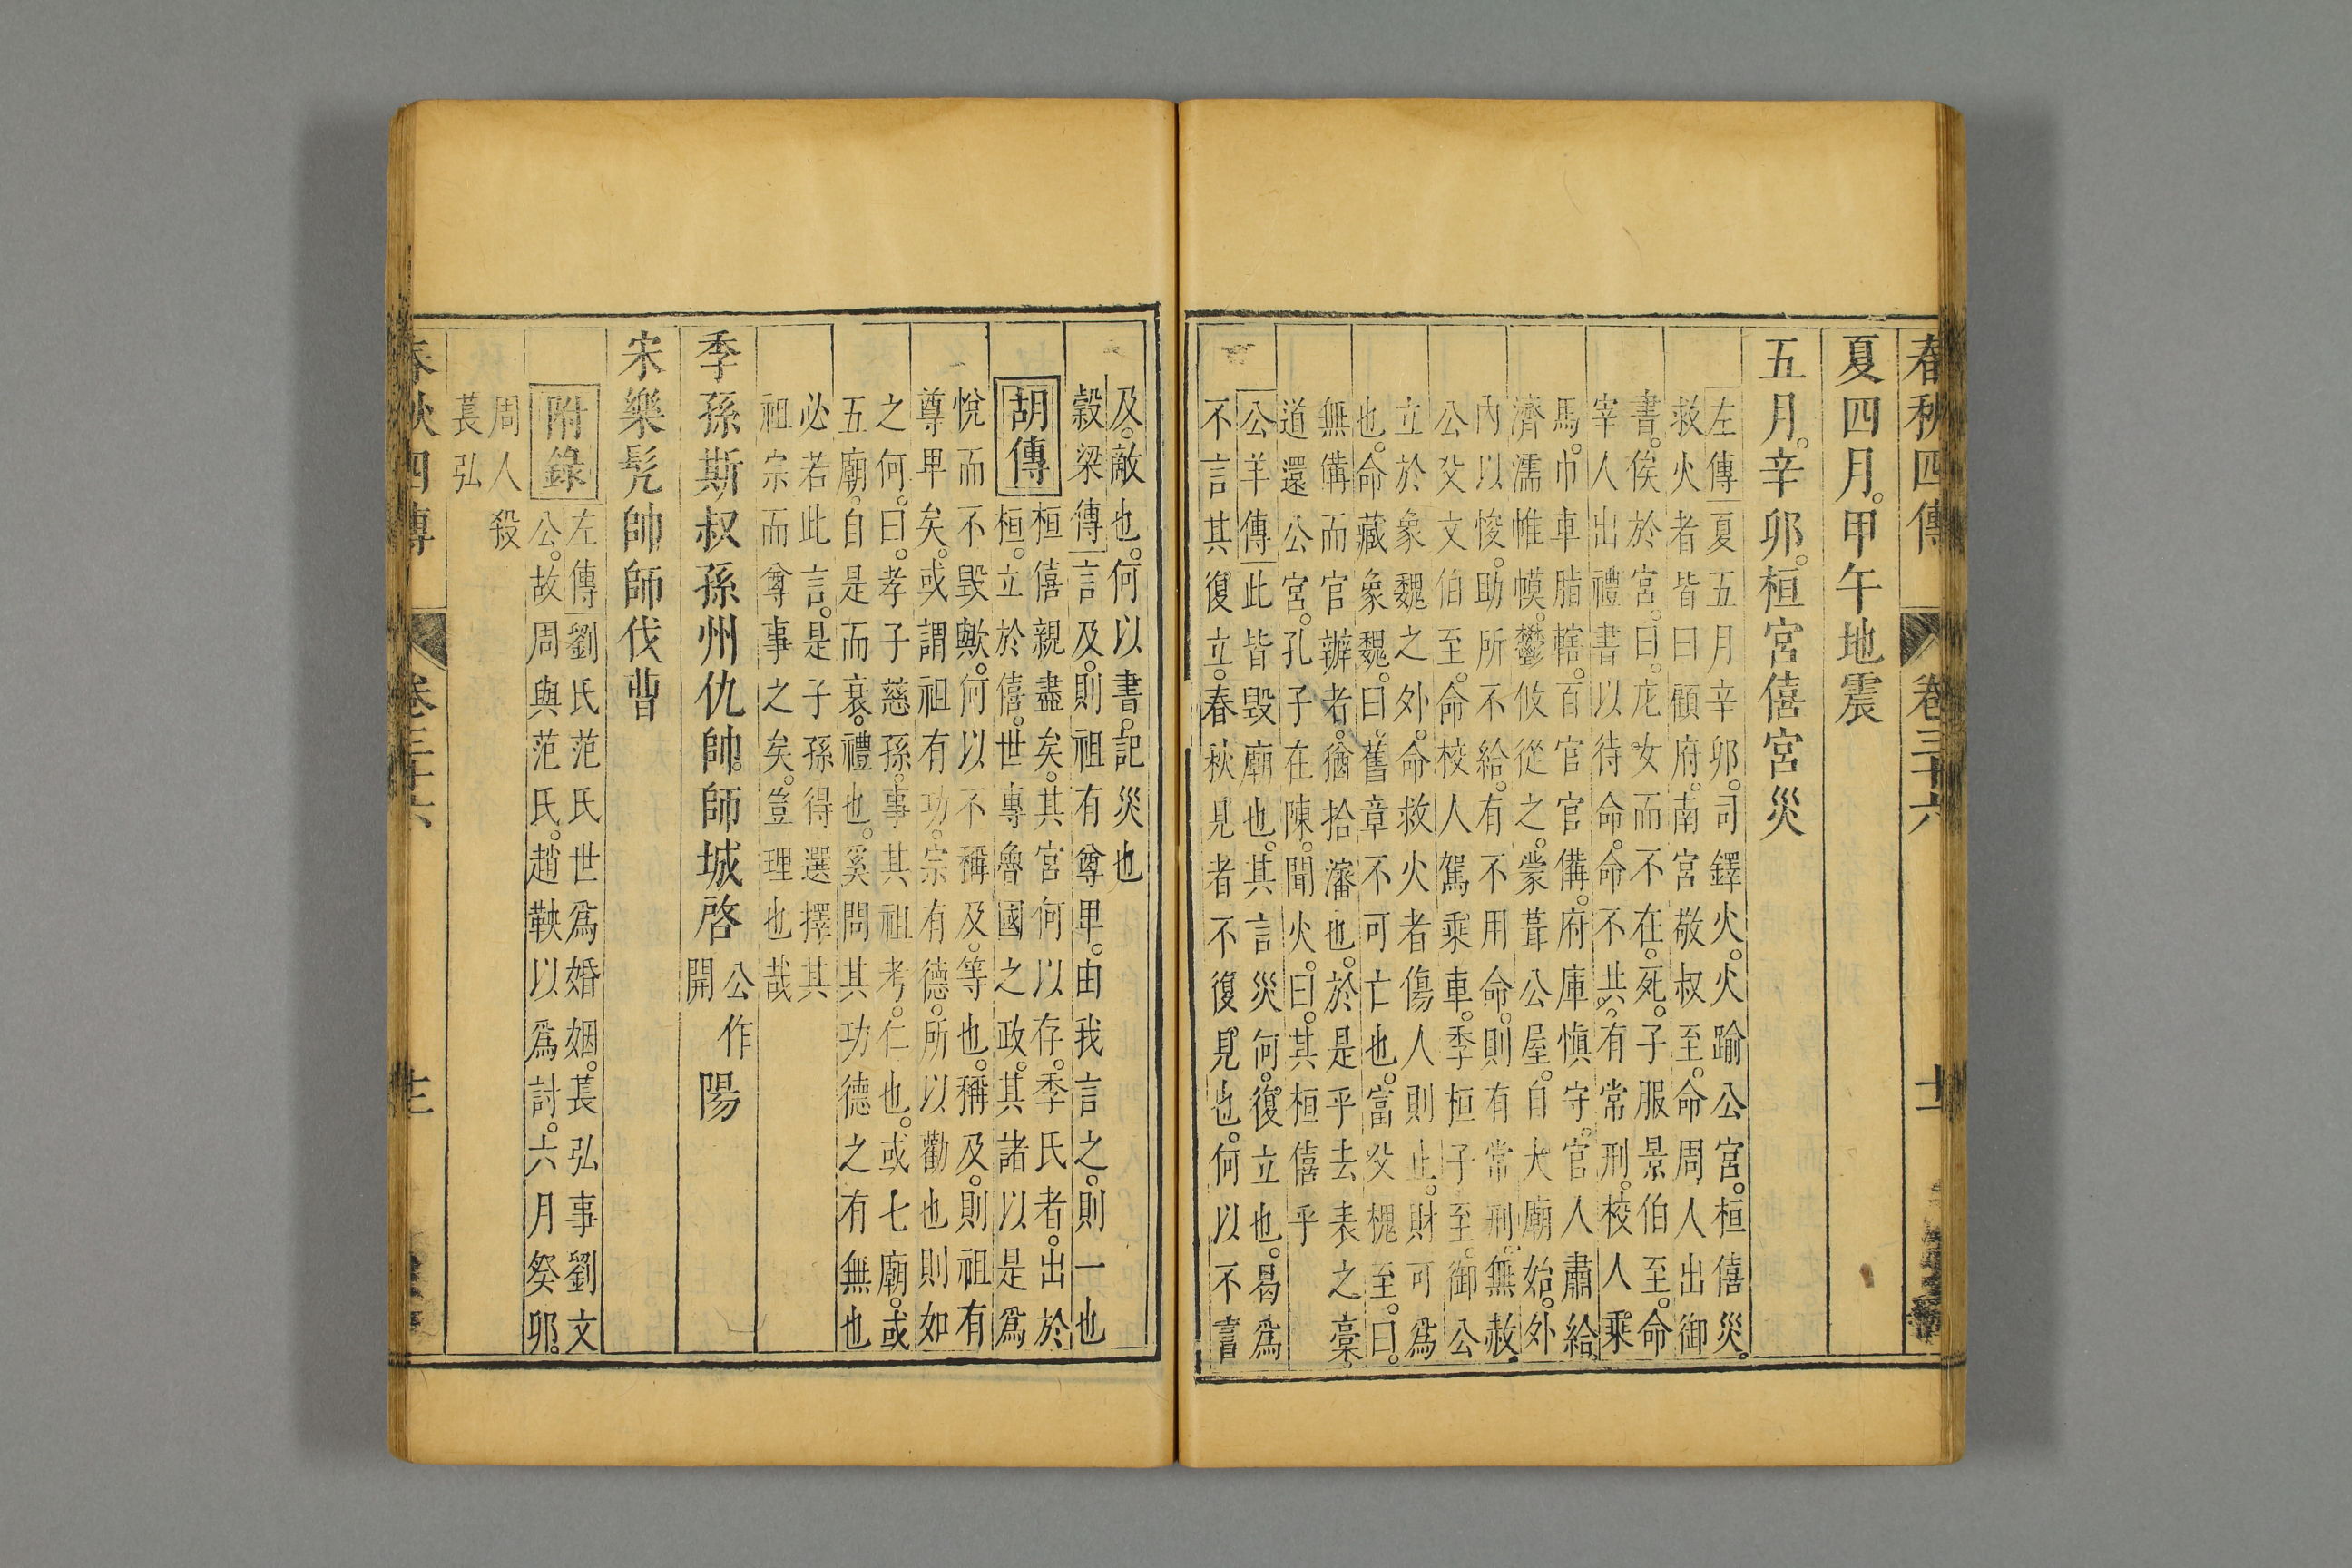 春秋四傳 卷三十六 十二
夏四月。甲午地震
五月。辛卯。桓宮僖宮災
左傳夏五月辛卯。司鐸火。火踰公宮。桓僖災。
救火者皆曰顧府。南宮敬叔至。命周人出御
書。俟於宮。曰。庀女而不在。死。子服景伯至。命
宰人出禮書以待命。命不共。有常刑。校人乘
馬。巾車脂轄。百官官備。府庫慎守。官人肅給。
濟濡帷幙。鬱攸從之。蒙葺公屋。自大廟始。外
內以悛。助所不給。有不用命。則有常刑。無赦。
公父文伯至。命校人駕乘車。季桓子至。御公
立於象魏之外。命救火者傷人則止。財可為
也。命藏象魏。曰。舊章不可亡也。富父槐至。曰。
無備而官辦者。猶拾瀋也。於是乎去表之槀。
道還公宮。孔子在陳。聞火。曰。其桓僖乎
公羊傳此皆毀廟也。其言災何。復立也。曷為
不言其復立。春秋見者不復見也。何以不書
及。敵也。何以書。記災也
穀梁傳言及。則祖有尊卑。由我言之。則一也
胡傳 桓僖親盡矣。其宮何以存。季氏者。出於
桓。立於僖。世專魯國之政。其諸以是爲
悅而不毀歟。何以不稱及。等也。稱及。則祖有
尊卑矣。或謂祖有功。宗有德。所以勸也則如
之何。曰。孝子慈孫。事其祖考。仁也。或七廟。或
五廟。自是而衰。禮也。奚問其功德之有無也
必若此言。是子孫得選擇其
祖宗而尊事之矣。豈理也哉
季孫斯叔孫州仇帥。師城啓 公作開 陽
宋樂髡帥師伐曹
附錄 左傳劉氏范氏世爲婚姻。萇弘事劉文
公。故周與范氏。趙鞅以爲討。六月癸卯。
周人殺
萇弘
春秋四傳 卷三十六